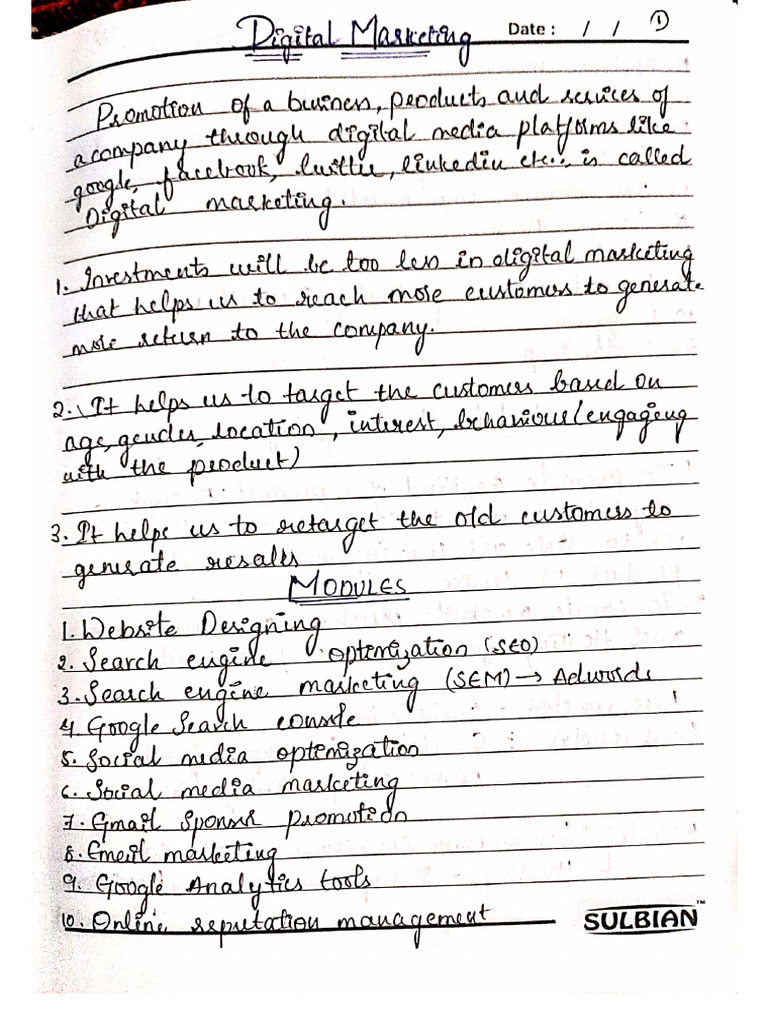 Digital Marketing Date : / / 1
Promotion of a business, products and services of
a company through digital media platforms like
google, facebook, twitter, linkedin etc.. is called
Digital marketing.
1. Investments will be too less in digital marketing
that helps us to reach more customers to generate
more return to the company.
2. It helps us to target the customers based on
age, gender, location, interest, behaviour (engaging
with the product)
3. It helps us to retarget the old customers to
generate results
MODULES
1. Website Designing
2. Search engine optimization (SEO)
3. Search engine marketing (SEM) → Adwords
4. Google Search console
5. Social media optimization
6. Social media marketing
7. Gmail Sponsor promotion
8. Email marketing
9. Google Analytics tools
10. Online reputation management
SULBIAN™